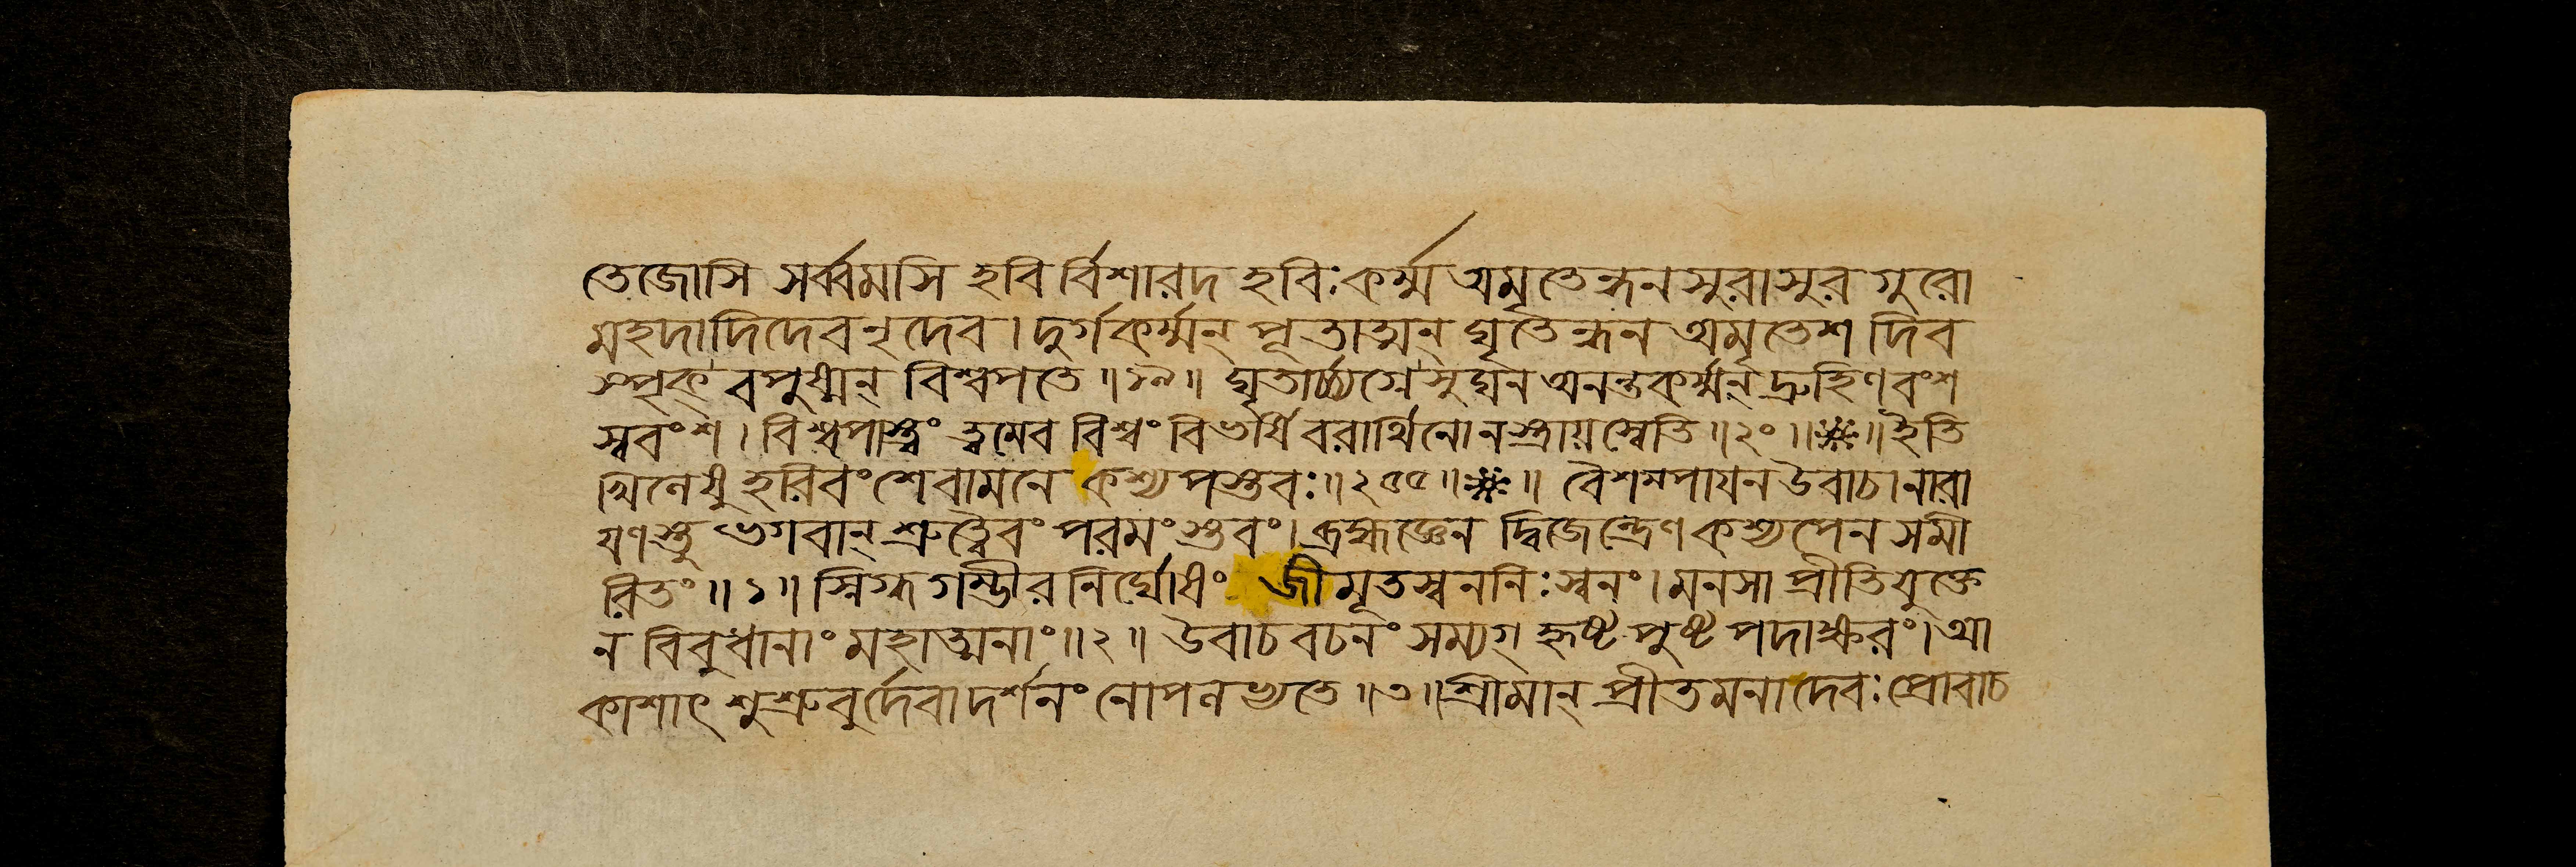 তেজোসি সর্ব্বমসি হবি র্বিশারদ হবিঃকর্ম্ম অমৃতেন্ধন সুরাসুর গুরো
মহদাদিদেব নৃদেব। দুর্গকর্ম্মন্ পূতাত্মন্ ঘৃতেন্ধন অমৃতেশ দিব
স্পৃক্ বপুষ্মন্ বিশ্বপতে॥১৯॥ ঘৃতার্চ্চ্যগ্নে সুঘন অনন্তকর্ম্মন্ দ্রুহিণ বংশ
স্ববংশ। বিশ্বপাস্ত্বং ত্বমেব বিশ্বং বিভর্ষি বরার্থিনো নস্ত্রায়স্বেতি॥২০॥ ॥ইতি
খিলেষু হরিবংশে বামনে কশ্যপস্তবঃ॥২৫৫॥ ॥ বৈশম্পায়ন উবাচ। নারা
য়ণস্তু ভগবান্ শ্রুত্বৈবং পরমং স্তবং। ব্রহ্মজ্ঞেন দ্বিজেন্দ্রেণ কশ্যপেন সমী
রিতং॥১॥ স্নিগ্ধগম্ভীরনির্ঘোষং জীমূতস্বননিঃস্বনং। মনসা প্রীতিযুক্তে
ন বিবুধানাং মহাত্মনাং॥২॥ উবাচ বচনং সম্যগ্ হৃষ্টপুষ্টপদাক্ষরং। আ
কাশাৎ শুশ্রুবুর্দেবা দর্শনং নোপলভ্যতে॥৩॥ শ্রীমান্ প্রীতমনা দেবঃ প্রোবাচ